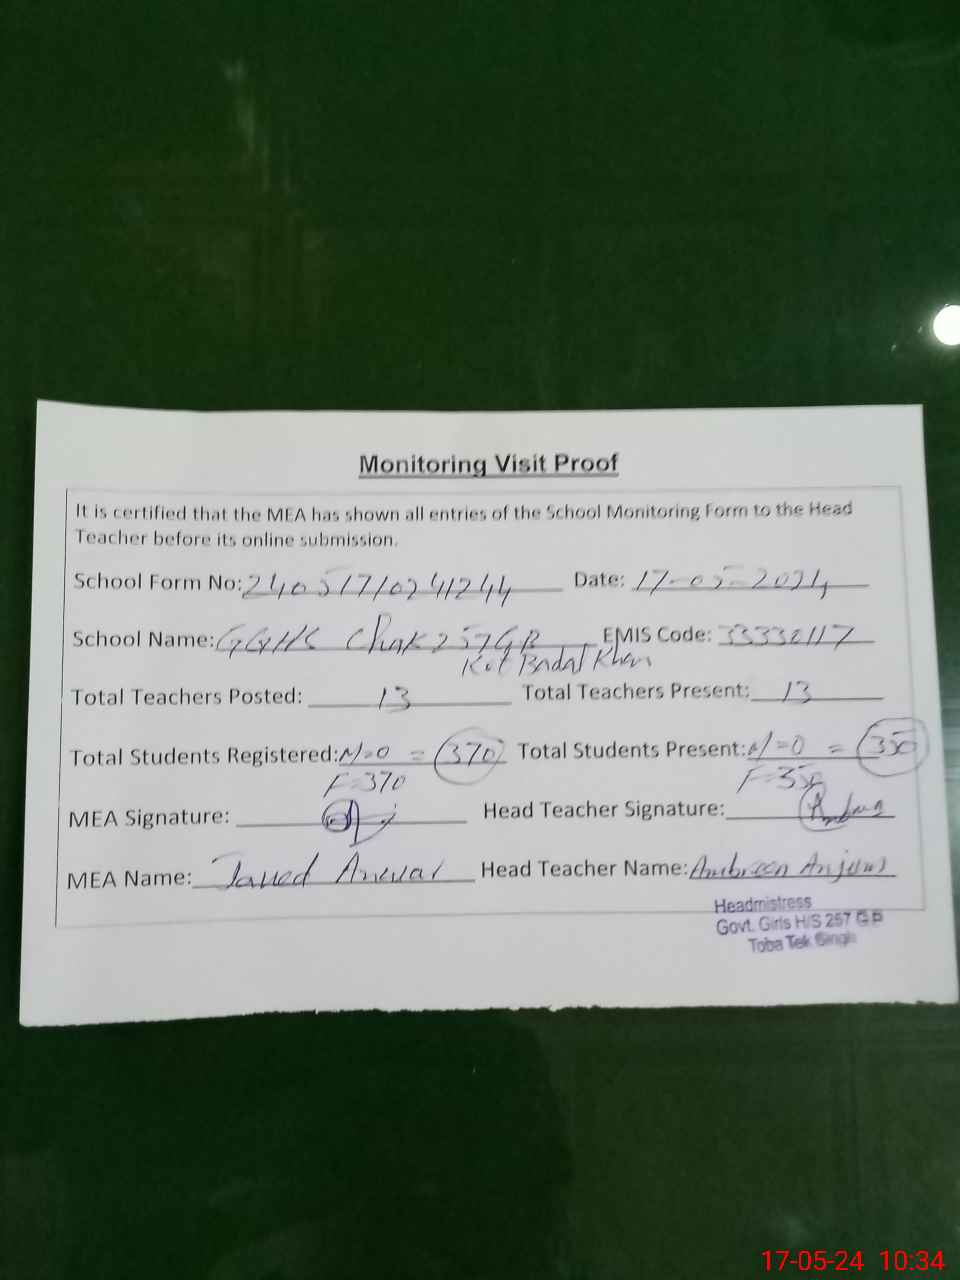 Monitoring Visit Proof
It is certified that the MEA has shown all entries of the School Monitoring Form to the Head
Teacher before its online submission.
School Form No: 24051710241244 Date: 17-05-2024
School Name: GGHS Chak 257GB EMIS Code: 33330117
Kot Badal Khan
Total Teachers Posted: 13 Total Teachers Present: 13
Total Students Registered: M=0 = 370 Total Students Present: M=0 = 350
F=370 F=350
MEA Signature: Head Teacher Signature:
MEA Name: Javed Anwar Head Teacher Name: Ambreen Anjum
Headmistress
Govt. Girls H/S 257 GB
Toba Tek Singh
17-05-24 10:34